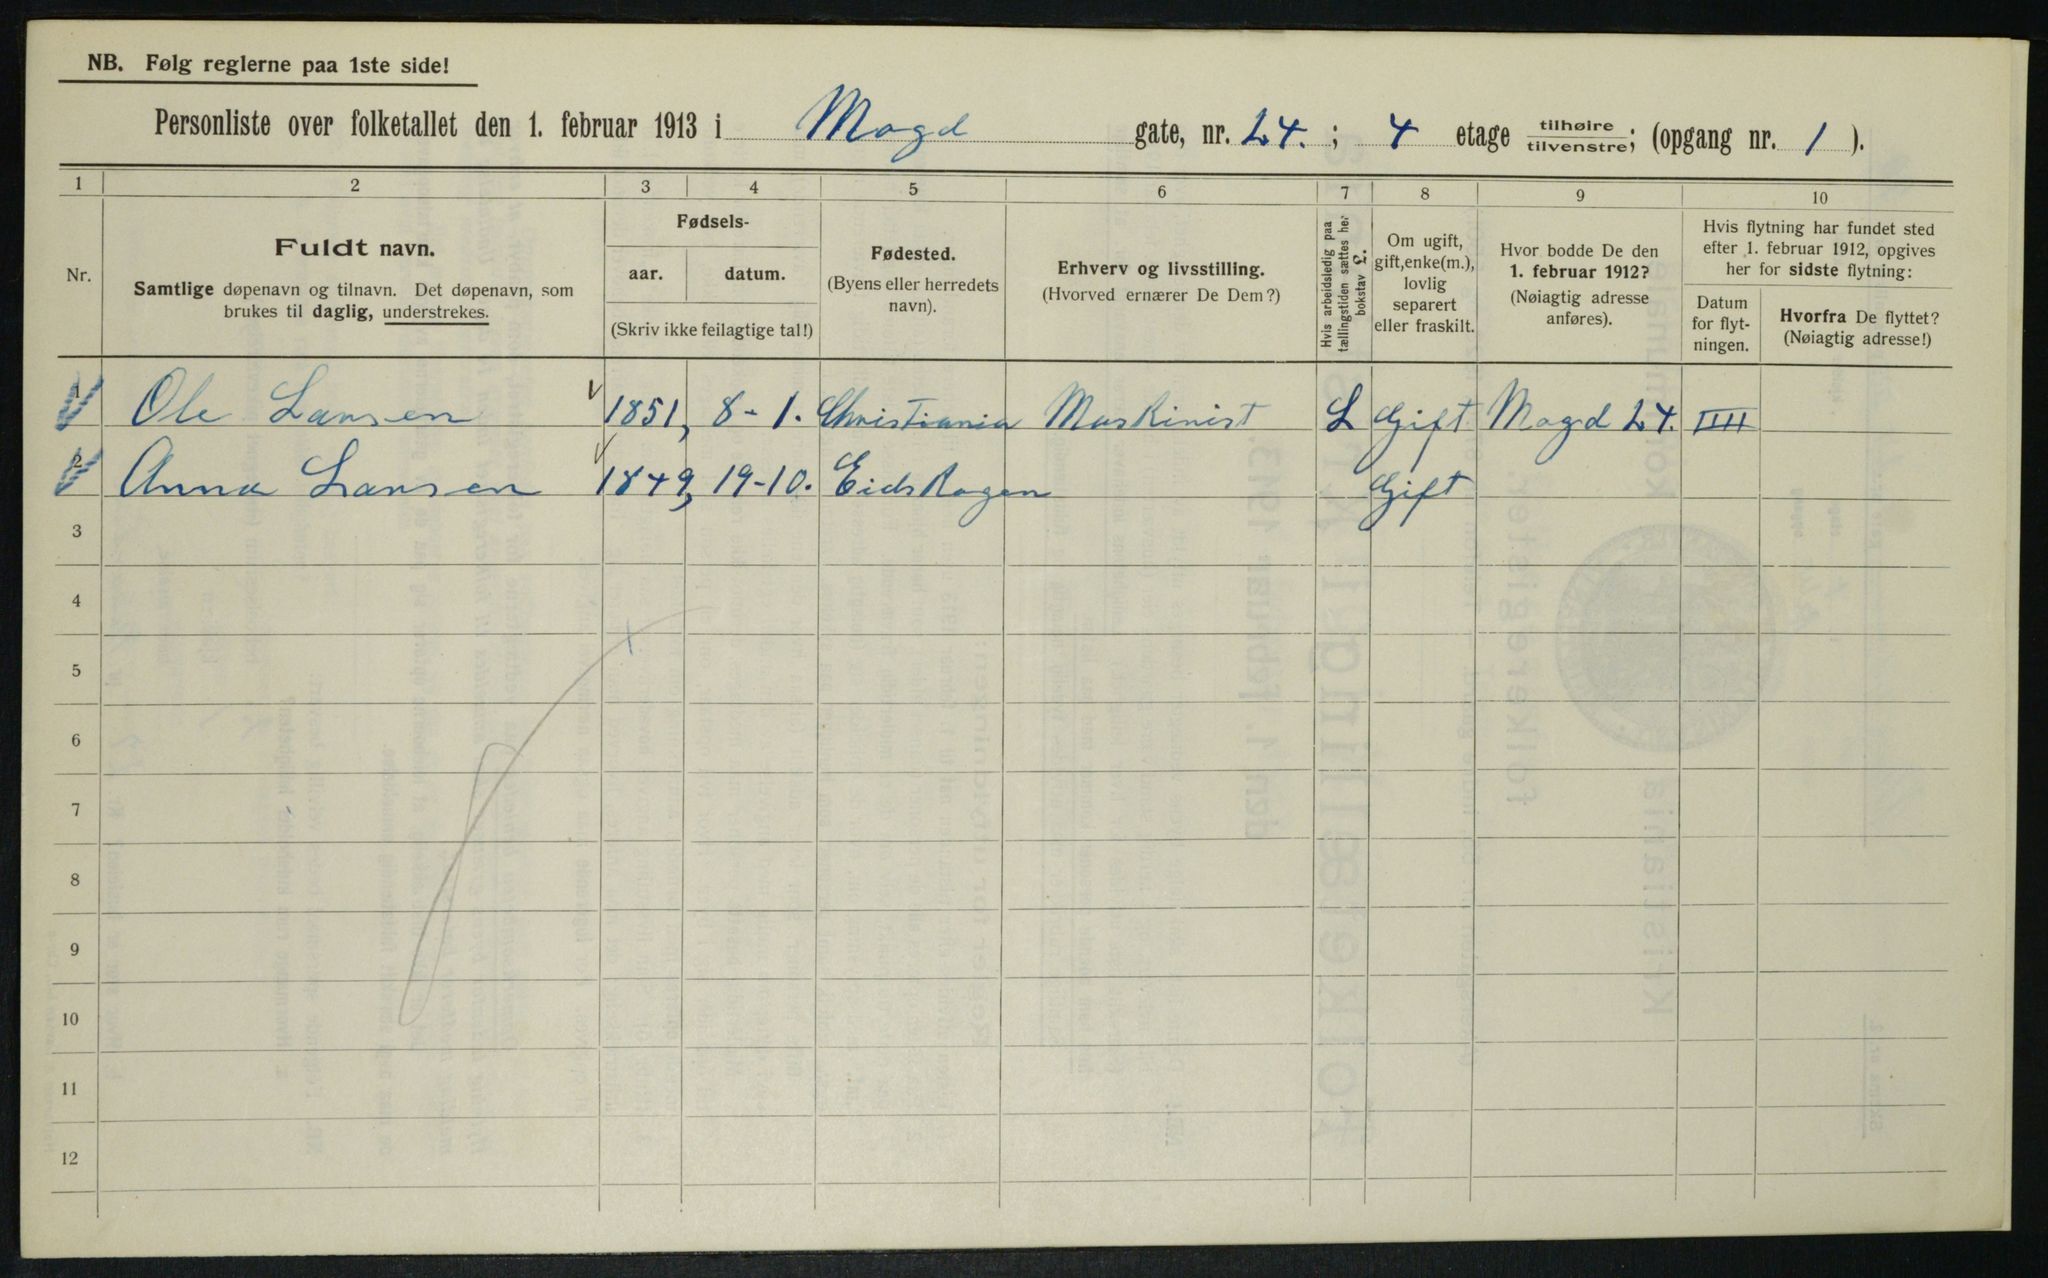 NB. Følg reglerne paa 1ste side!
Personliste over folketallet den 1. februar 1913 i Magd gate, nr. 24. ; 4 etage tilhøire tilvenstre; (opgang nr. 1 ).
1 2 3 4 5 6 7 8 9 10
Nr.
Fuldt navn.
Samtlige døpenavn og tilnavn. Det døpenavn, som
brukes til daglig, understrekes.
Fødsels-
aar. datum.
(Skriv ikke feilagtige tal!)
Fødested.
(Byens eller herredets
navn).
Erhverv og livsstilling.
(Hvorved ernærer De Dem?)
Hvis arbeidsledig paa
tællingstiden sættes her
bokstav L.
Om ugift,
gift, enke(m.),
lovlig
separert
eller fraskilt.
Hvor bodde De den
1. februar 1912?
(Nøiagtig adresse
anføres).
Hvis flytning har fundet sted
efter 1. februar 1912, opgives
her for sidste flytning:
Datum
for flyt-
ningen.
Hvorfra De flyttet?
(Nøiagtig adresse!)
1 Ole Larsen 1851, 8-1. Christiania Maskinist L Gift Magd 24. IIII
2 Anna Larsen 1849, 19-10. Eidskogen Gift
3
4
5
6
7
8
9
10
11
12